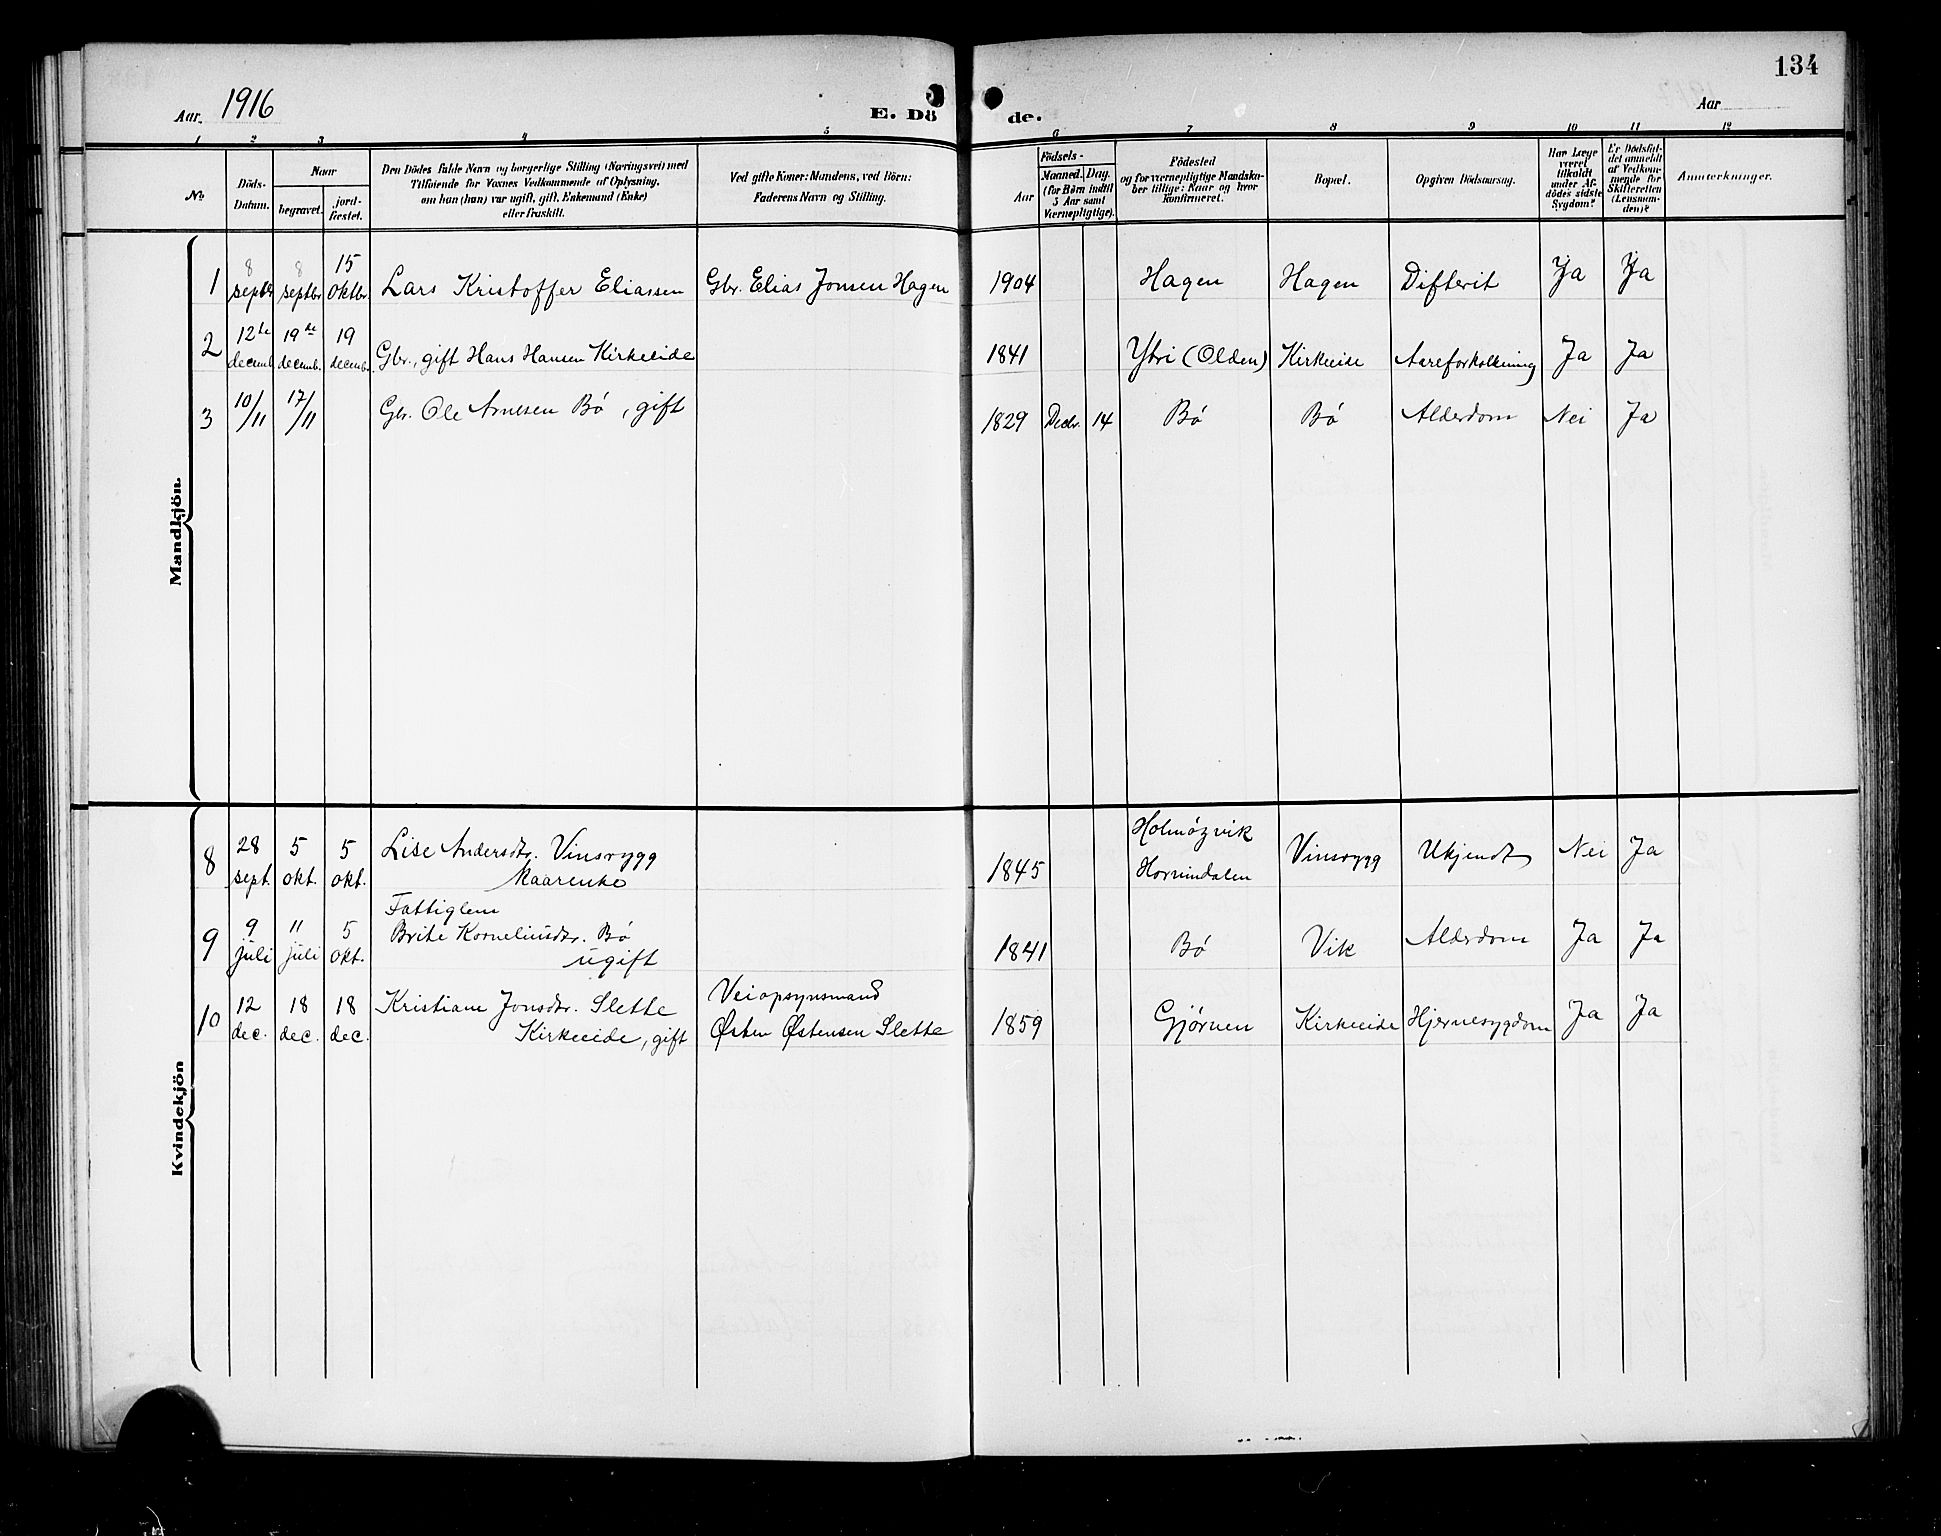 134
Aar. 1916
E. Dö de.
Aar
1 2 3 4 5 6 7 8 9 10 11 12
No.
Döds-Datum.
Naar
begravet.
jord-fæstet.
Den Dödes fulde Navn og borgerlige Stilling (Næringsvei) med
Tilföiende for Voxnes Vedkommende af Oplysning,
om han (hun) var ugift, gift, Enkemand (Enke)
eller fraskilt.
Ved gifte Koner: Mandens, ved Börn:
Faderens Navn og Stilling.
Födsels-
Aar
Maaned. Dag.
(for Börn indtil
5 Aar samt
Værnepligtige).
Födested
og for værnepligtige Mandska-
ber tillige: Naar og hvor
konfirmeret.
Bopæl.
Opgiven Dödsaarsag.
Har Læge
været
tilkaldt
under Af-
dödes sidste
Sygdom?
Er Dödsfal-
det anmeldt
af Vedkom-
mende for
Skifteretten
(Lensman-
den)?
Anmærkninger.
Mandkjön.
1 8 septbr 8 septbr 15 oktbr. Lars Kristoffer Eliassen Gbr. Elias Jonsen Hagen 1904 Hagen Hagen Difterit Ja Ja
2 12te decemb. 19de decemb. 19 decemb. Gbr., gift Hans Hansen Kirkeeide 1841 Ytri (Olden) Kirkeeide Aareforkalkning Ja Ja
3 10/11 17/11 Gbr. Ole Arnesen Bö, gift 1829 Decbr. 14 Bö Bö Alderdom Nei Ja
Kvindekjön
8 28 sept. 5 okt. 5 okt. Lise Andersdtr. Vinsrygg 1845 Holmöyvik Vinsrygg Ukjendt Nei Ja
Kaarenke Hornindalen
Fattiglem
9 9 juli 11 juli 5 okt. Brite Korneliusdtr. Bö 1841 Bö Vik Alderdom Ja Ja
ugift
10 12 dec. 18 dec. 18 dec. Kristiane Jonsdtr. Slette Veiopsynsmand
Kirkeeide, gift Østen Østensen Slette 1859 Gjørven Kirkeeide Hjernesygdom Ja Ja